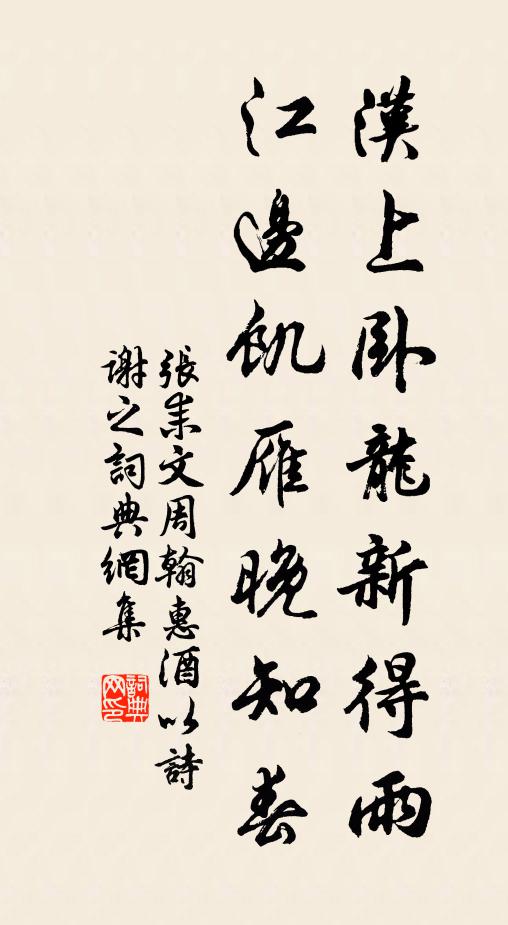 漢上臥龍新得雨
江邊飢雁晚知春
張耒文周翰惠酒以詩
謝之詞典網集
詞典網印